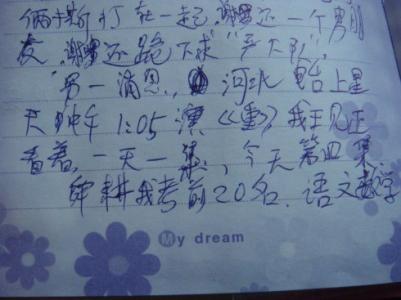 俩厮打在一起,谢 还一个男朋
友,谢 还跪下求"严大队"。
另一滴恩, 河北电台上星
天 午1:05演《 》我正
看着,一天一集,今天第四集
舜耕我考前20名.语文数学
My dream